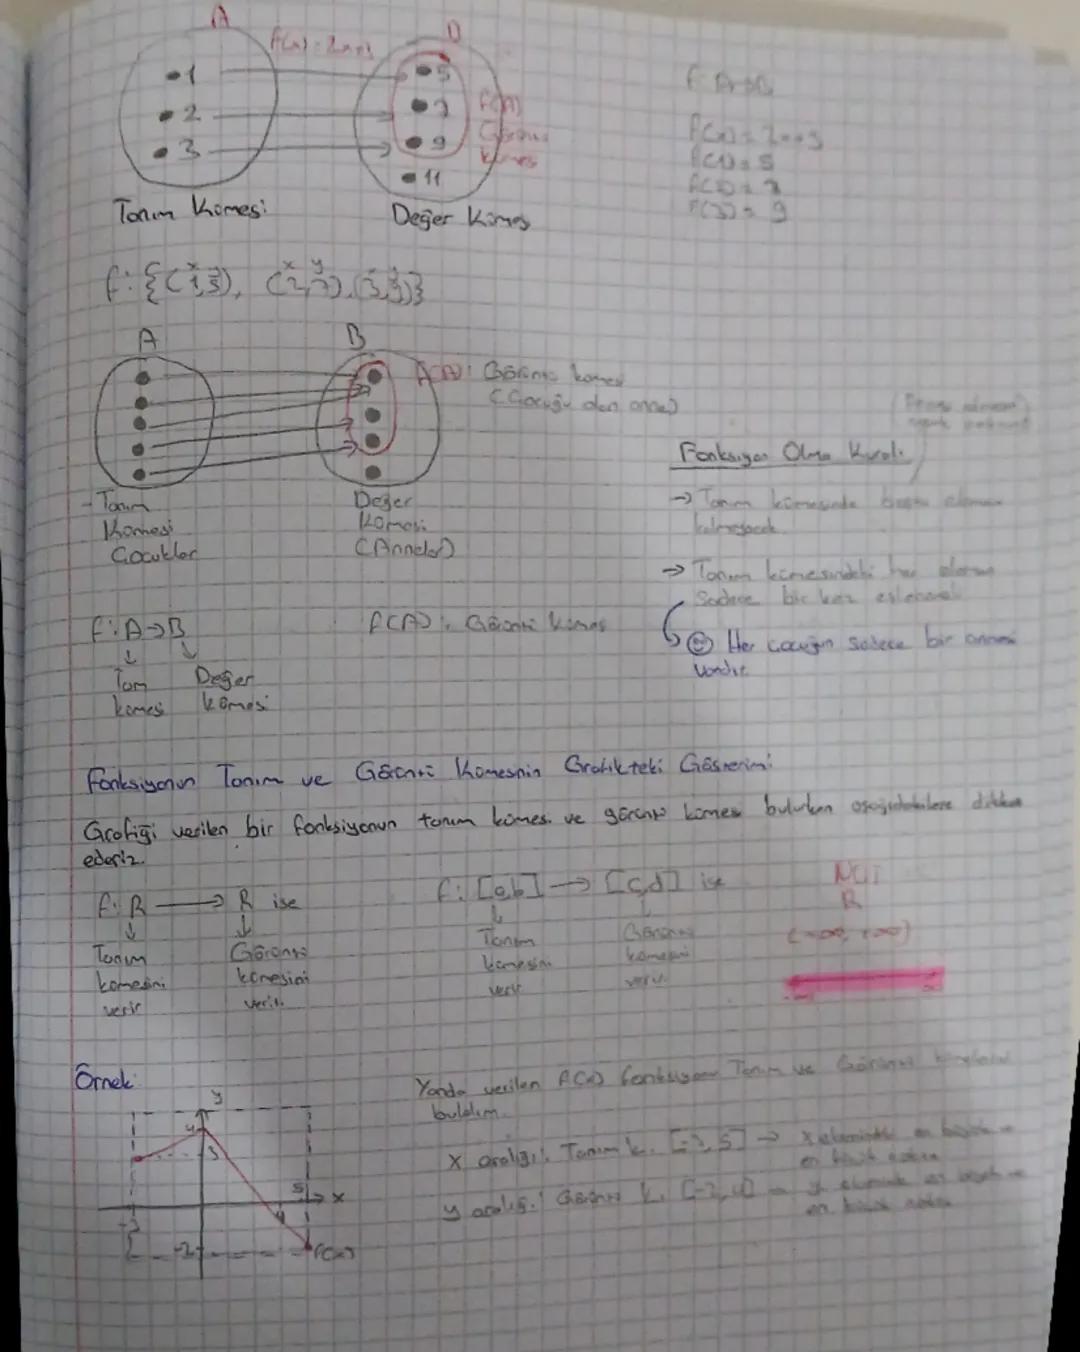 A
f(x) = 2x+3
B
1
2
3
5
7
9
11
f(A)
Görüntü
kümes
Tanım Kümesi
Değer Kümes
f: A→B
f(x) = 2x+3
f(1) = 5
f(2) = 7
f(3) = 9
x y
x y
f: {(1,5), (2,7), (3,9)}
A
B
f(A): Görüntü kümesi
(Çocuğu olan anne)
Tanım
Kümesi
Çocuklar
Değer
Kümesi
(Anneler)
Fonksiyon Olma Kuralı
→ Tanım kümesinde eleman
kalmayacak
→ Tanım kümesindeki her eleman
Sadece bir kez eşlenecek
Her çocuğun sadece bir annesi
vardır.
f: A→B
Tanım
kümesi
Değer
kümesi
f(A): Görüntü Kümes
Fonksiyonun Tanım ve Görüntü Kümesinin Grafikteki Gösterimi
Grafiği verilen bir fonksiyonun tanım kümesi ve görüntü kümesi bulurken aşağıdakilere dikkat
ederiz.
f: R → R ise
Tanım
kümesini
verir
Görüntü
kümesini
verir.
f: [a,b] → [c,d] ise
Tanım
kümesini
verir
Görüntü
kümesini
verir.
NOT
R
(-∞, +∞)
Örnek:
y
4
3
5
x
-3
4
-2
f(x)
Yanda verilen f(x) fonksiyonu Tanım ve Görüntü
bulalım.
x aralığı: Tanım k. [-3, 5] → x en büyük
en küçük nokta
y aralığı: Görüntü k. [-2, 4] → y en
en küçük nokta